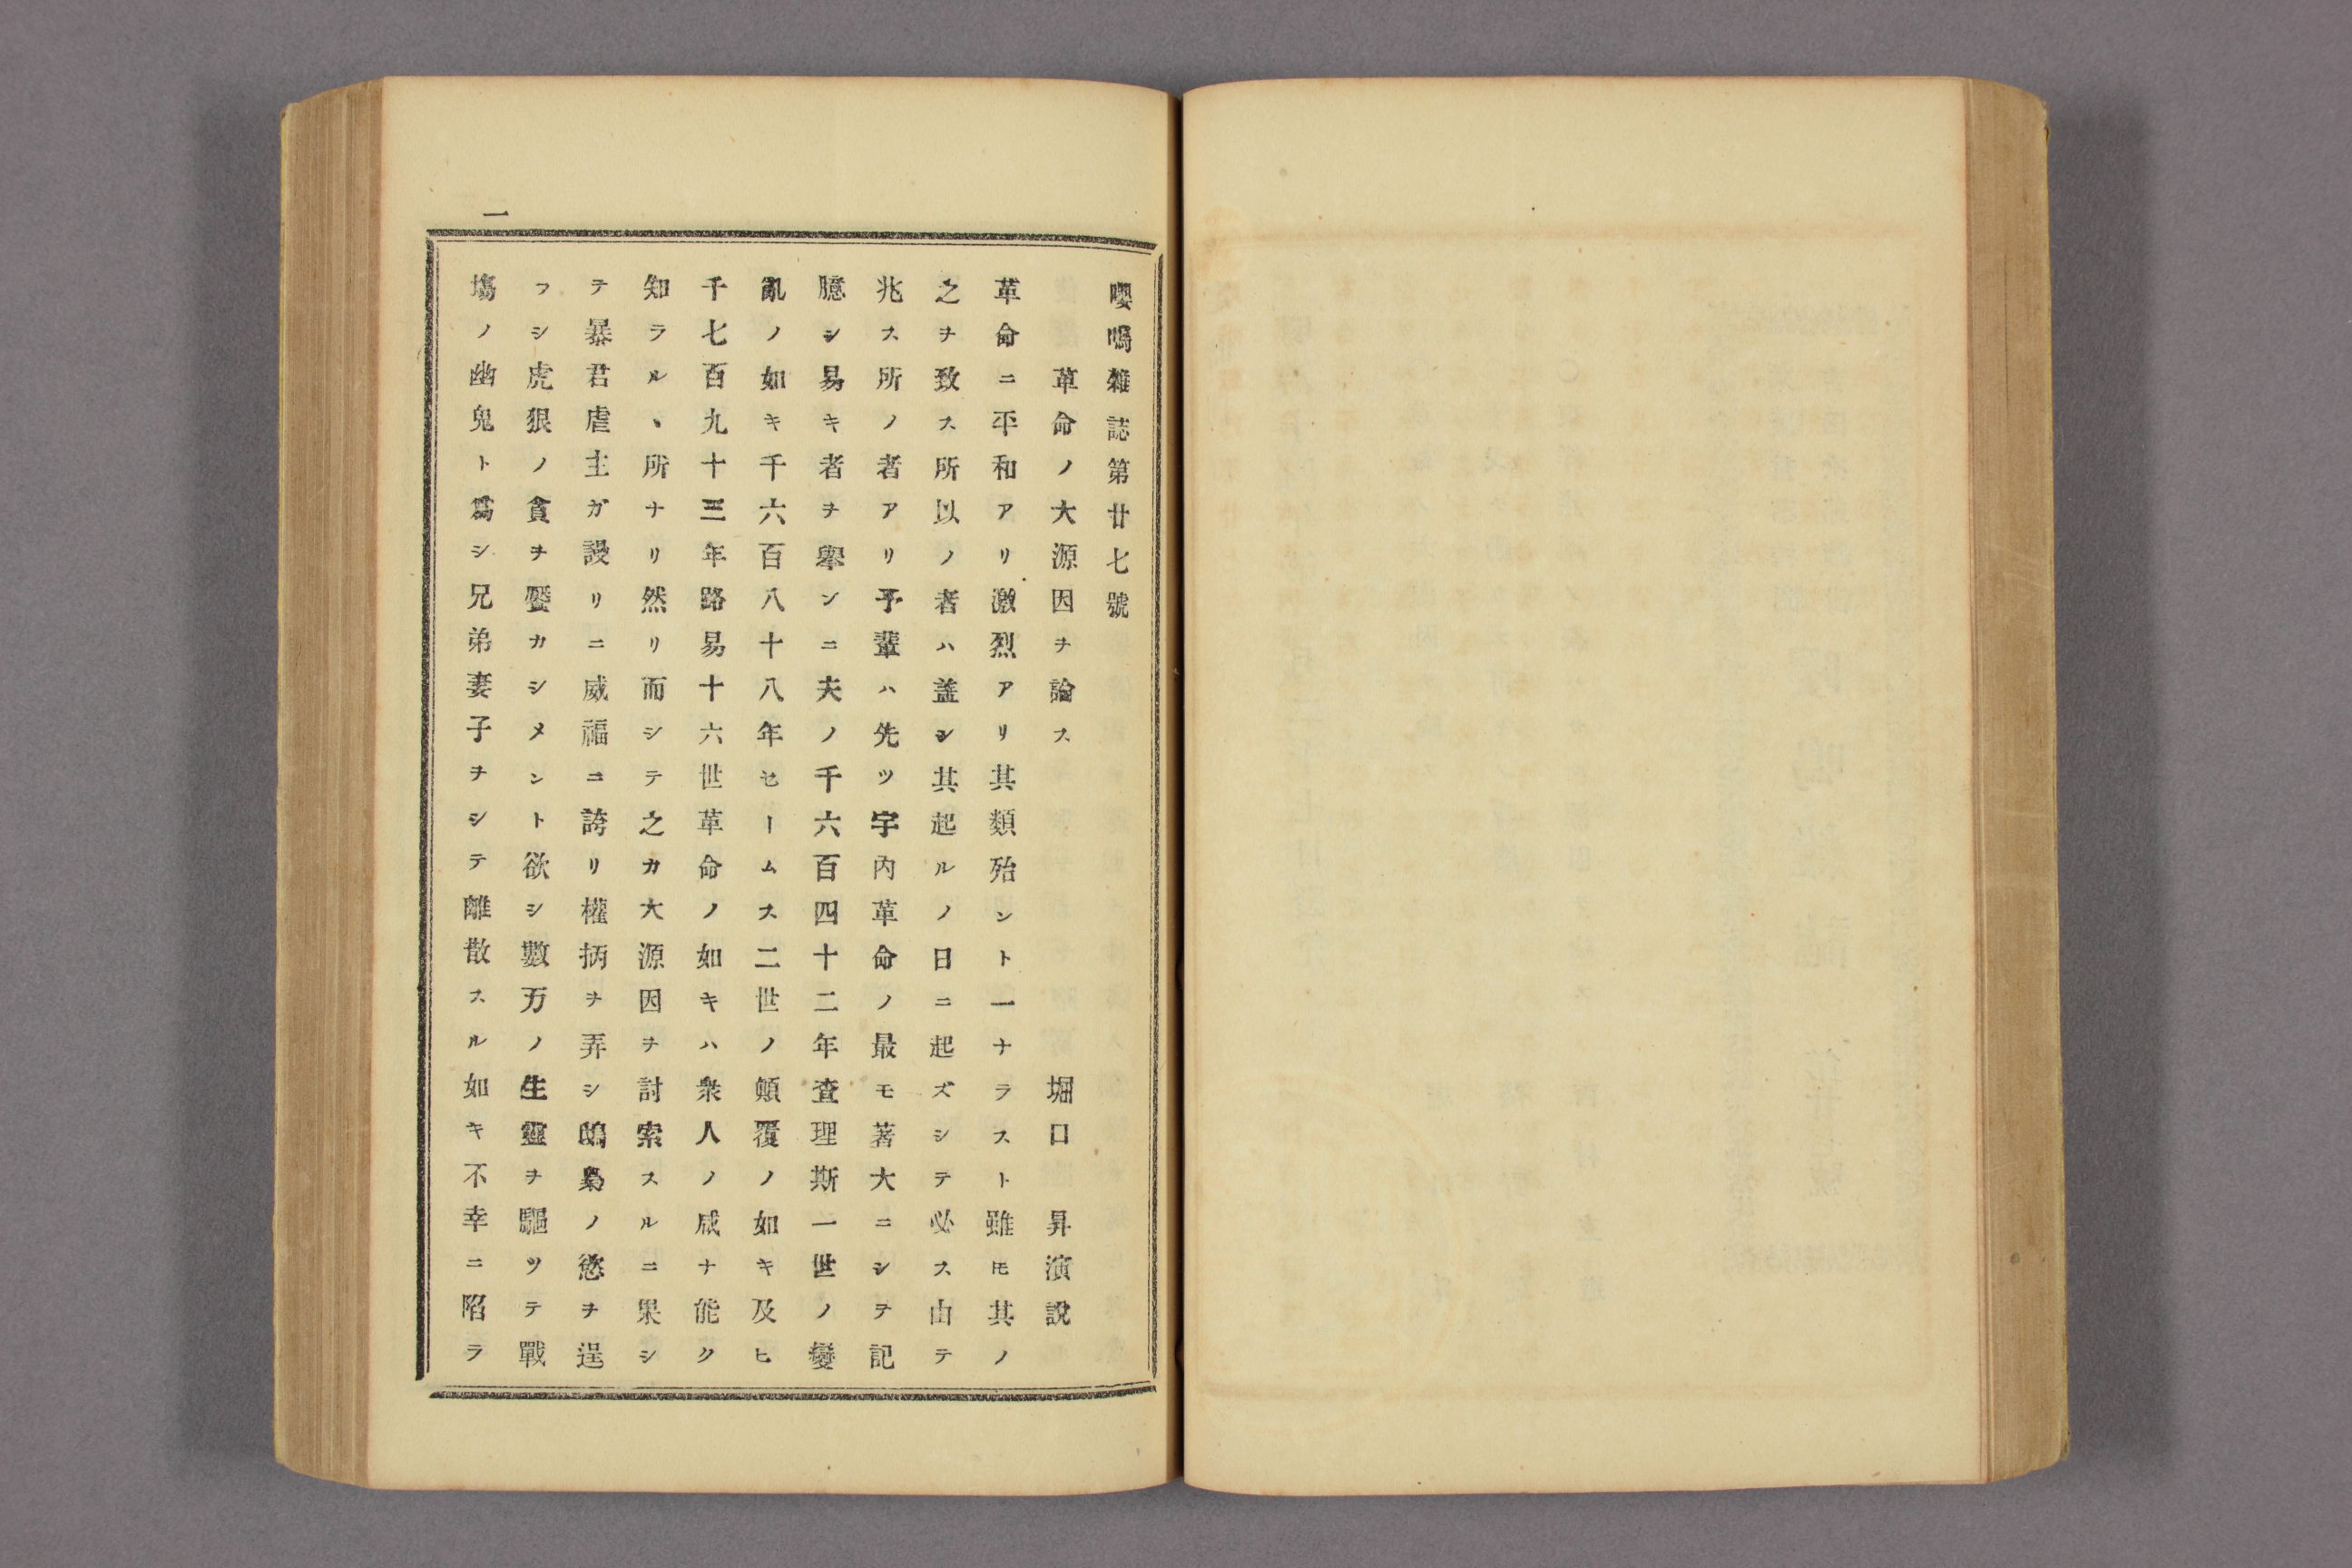 一
嚶鳴雜誌第廿七號
革命ノ大源因ヲ論ス 堀口昇演説
革命ニ平和アリ激烈アリ其類殆ント一ナラスト雖モ其ノ
之ヲ致ス所以ノ者ハ蓋シ其起ルノ日ニ起ズシテ必ス由テ
兆ス所ノ者アリ予輩ハ先ツ宇内革命ノ最モ著大ニシテ記
臆シ易キ者ヲ擧ンニ夫ノ千六百四十二年査理斯一世ノ變
亂ノ如キ千六百八十八年セームス二世ノ顛覆ノ如キ及ヒ
千七百九十三年路易十六世革命ノ如キハ衆人ノ咸ナ能ク
知ラルヽ所ナリ然リ而シテ之カ大源因ヲ討索スルニ果シ
テ暴君虐主ガ謾リニ威福ニ誇リ權柄ヲ弄シ鴟梟ノ慾ヲ逞
フシ虎狼ノ貪ヲ饜カシメント欲シ數万ノ生靈ヲ驅ツテ戰
塲ノ幽鬼ト爲シ兄弟妻子ヲシテ離散スル如キ不幸ニ陷ラ